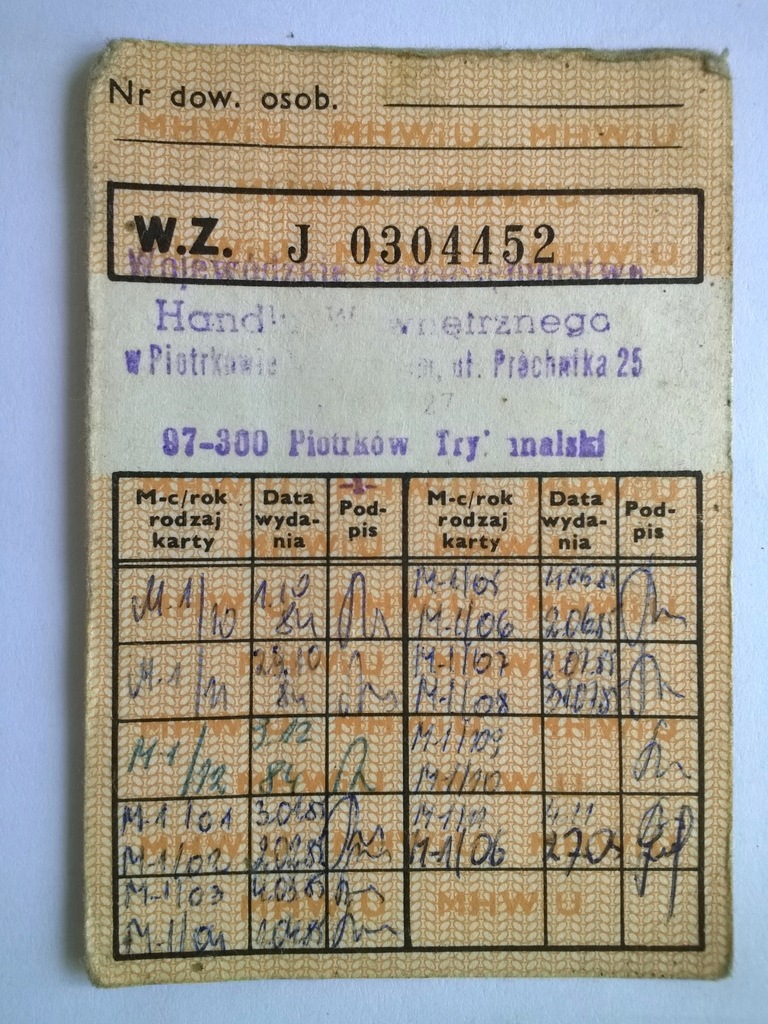 Nr dow. osob.
MHWiU MHWiU MHWiU
MHWiU MHWiU
W.Z. J 0304452
Wojewódzkie
Handlu Wewnętrznego
w Piotrkowie ul. Próchnika 25
27
97-300 Piotrków Trybunalski
-1-
M-c/rok rodzaj karty Data wydania Podpis M-c/rok rodzaj karty Data wydania Podpis
M-1/10 1.10 84 M-1/05 4.05.85
M-1/06 2.06.85
M-1/11 29.10 84 M-1/07 2.07.85
M-1/08 31.07.85
M-1/12 3.12 84 M-1/09
M-1/10
M-1/01 3.01.85 M-1/11 4.11
M-1/02 2.02.85 M-1/06
M-1/03 4.03.85
MHWiU
M-1/04 1.04.85